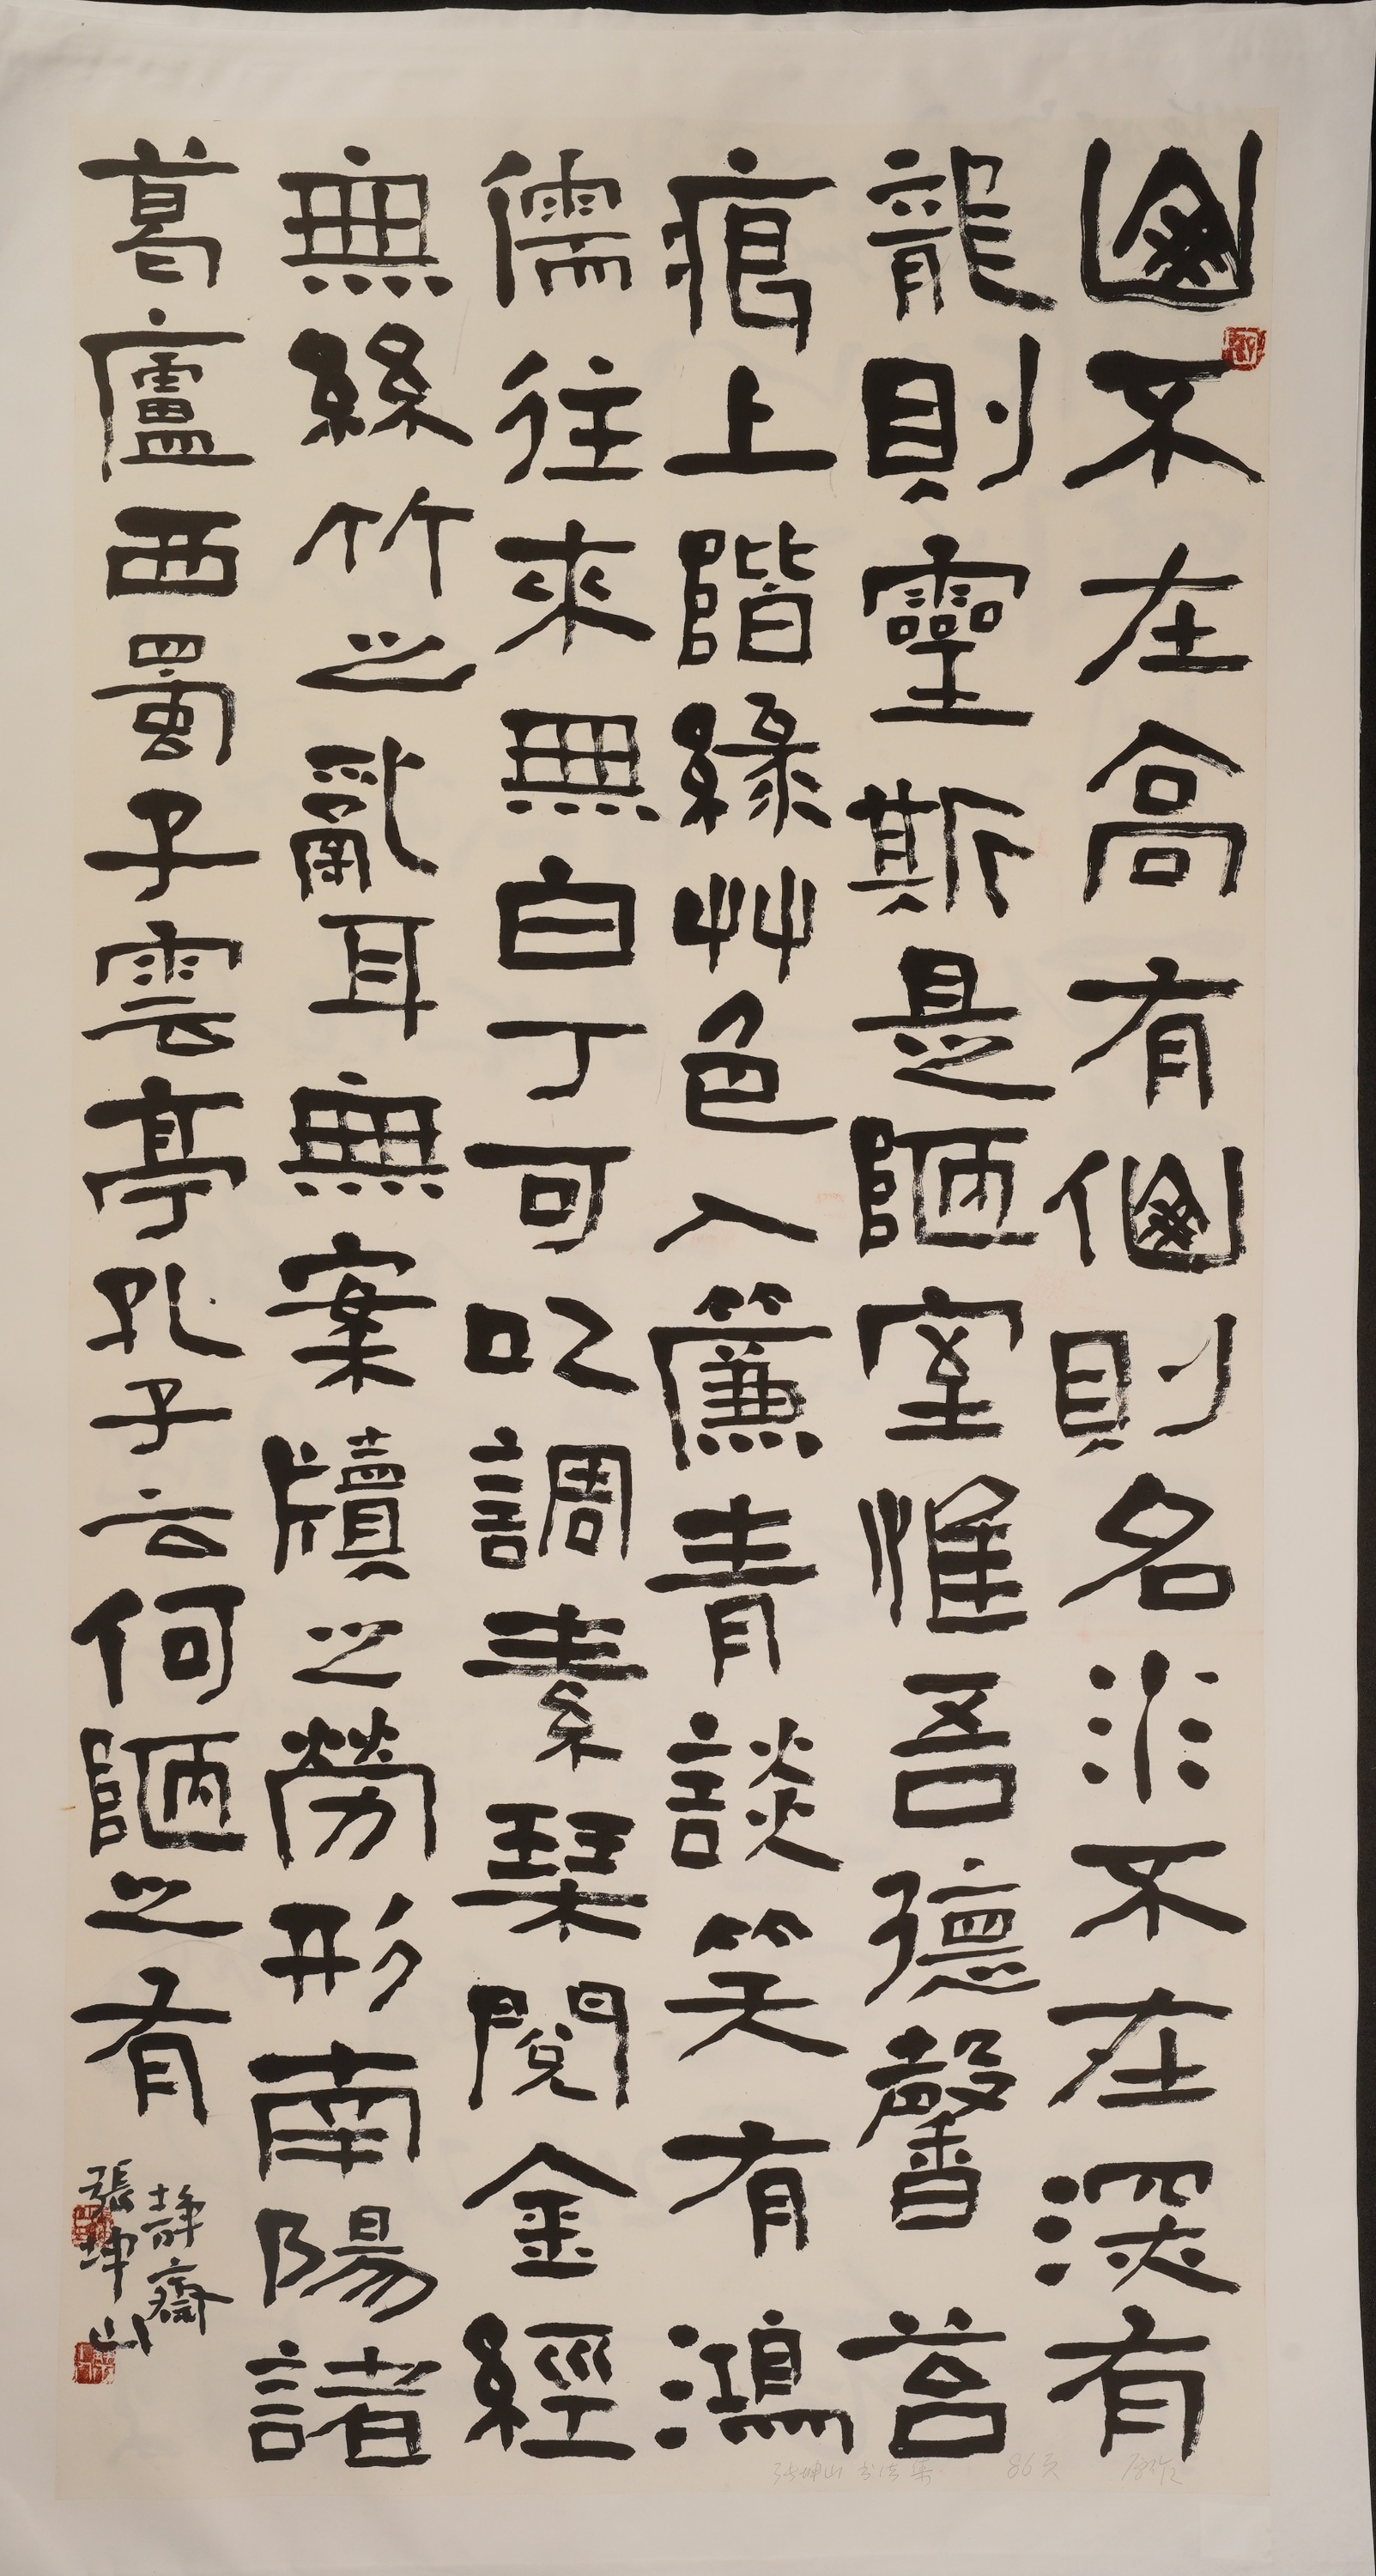 山不在高有仙則名水不在深有
龍則靈斯是陋室惟吾德馨苔
痕上階綠艸色入簾青談笑有鴻
儒往來無白丁可以調素琴閱金經
無絲竹之亂耳無案牘之勞形南陽諸
葛廬西蜀子雲亭孔子云何陋之有
静齋
張坤山
张坤山书法集 86页 原作